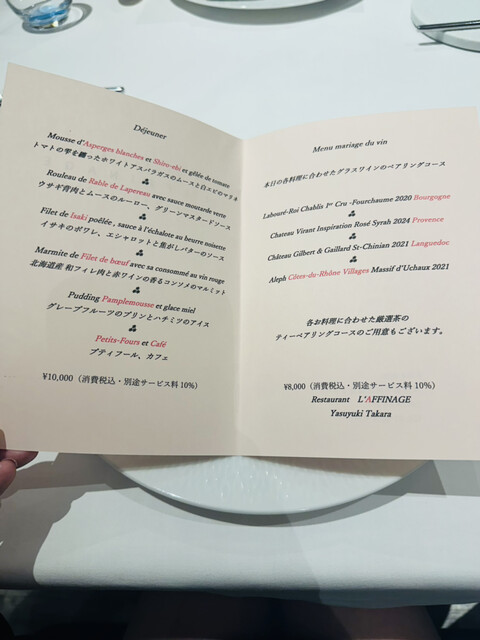 Déjeuner
Mousse d'Asperges blanches et Shiro-ebi et gêlée de tomate
トマトの雫を纏ったホワイトアスパラガスのムースと白エビのマリネ
Rouleau de Rable de Lapereau avec sauce moutarde verte
ウサギ背肉とムースのルーロー、グリーンマスタードソース
Filet de Isaki poêlée , sauce à l'échalote au beurre noisette
イサキのポワレ、エシャロットと焦がしバターのソース
Marmite de Filet de bœuf avec sa consommé au vin rouge
北海道産 和フィレ肉と赤ワインの香るコンソメのマルミット
Pudding Pamplemousse et glace miel
グレープフルーツのプリンとハチミツのアイス
Petits-Fours et Café
プティフール、カフェ
¥10,000（消費税込・別途サービス料 10%）
Menu mariage du vin
本日の各料理に合わせたグラスワインのペアリングコース
Labouré-Roi Chablis 1er Cru -Fourchaume 2020 Bourgogne
Chateau Virant Inspiration Rosé Syrah 2024 Provence
Château Gilbert & Gaillard St-Chinian 2021 Languedoc
Aleph Côtes-du-Rhône Villages Massif d'Uchaux 2021
各お料理に合わせた厳選茶の
ティーペアリングコースのご用意もございます。
¥8,000（消費税込・別途サービス料 10%）
Restaurant L'AFFINAGE
Yasuyuki Takara